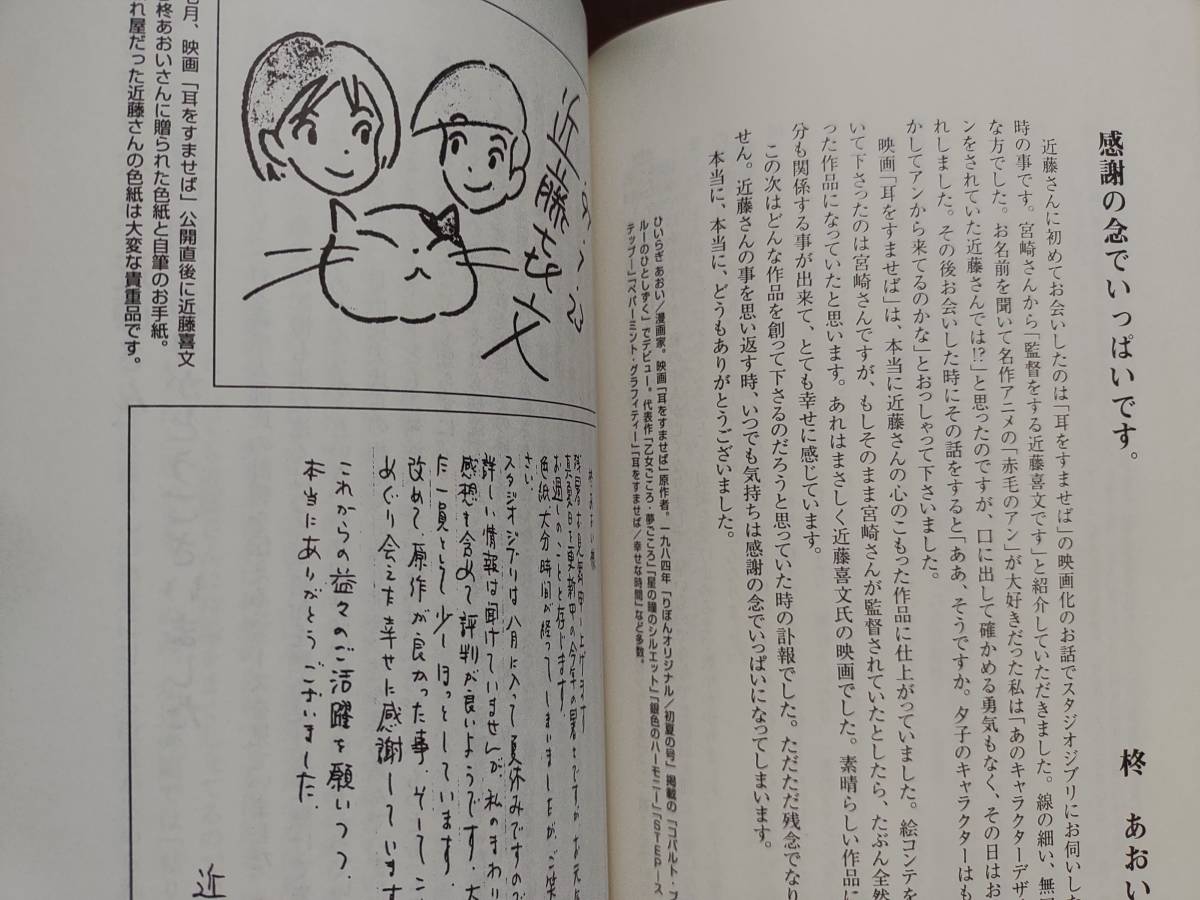 感謝の念でいっぱいです。
柊 あおい
近藤さんに初めてお会いしたのは「耳をすませば」の映画化のお話でスタジオジブリにお伺いした
時の事です。宮崎さんから「監督をする近藤喜文です」と紹介していただきました。線の細い、無口
な方でした。お名前を聞いて名作アニメの「赤毛のアン」が大好きだった私は「あのキャラクターデザ
ンをされていた近藤さんでは!?」と思ったのですが、口に出して確かめる勇気もなく、その日はお
れしました。その後お会いした時にその話をすると「ああ、そうですか。夕子のキャラクターはも
かしてアンから来てるのかな」とおっしゃって下さいました。
映画「耳をすませば」は、本当に近藤さんの心のこもった作品に仕上がっていました。絵コンテを
いて下さったのは宮崎さんですが、もしそのまま宮崎さんが監督されていたとしたら、たぶん全然
った作品になっていたと思います。あれはまさしく近藤喜文氏の映画でした。素晴らしい作品に
分も関係する事が出来て、とても幸せに感じています。
この次はどんな作品を創って下さるのだろうと思っていた時の訃報でした。ただただ残念でなり
せん。近藤さんの事を思い返す時、いつでも気持ちは感謝の念でいっぱいになってしまいます。
本当に、本当に、どうもありがとうございました。
ひいらぎ あおい/漫画家。映画「耳をすませば」原作者。一九八四年「りぼんオリジナル/初夏の号」掲載の「コバルト・ブ
ルーのひとしずく」でデビュー。代表作「乙女ごころ・夢ごころ」「星の瞳のシルエット」「銀色のハーモニー」「STEPース
テップー」「ペパーミント・グラフィティー」「耳をすませば/幸せな時間」など多数。
近藤喜文
月、映画「耳をすませば」公開直後に近藤喜文
柊あおいさんに贈られた色紙と自筆のお手紙。
れ屋だった近藤さんの色紙は大変な貴重品です。
柊あおい様
残暑お見舞申し上げます
真夏日を更新中の今年の暑さですが、お元気
お過しのことと存じます。
色紙大分時間が経ってしまいましたが、ご笑
さい。
スタジオジブリは八月に入って夏休みですので
詳しい情報は聞けていませんが、私のまわり
感想を含めて評判が良いようです。大
た一員として少しほっとしています。
改めて、原作が良かった事、そしてこ
めぐり会えた幸せに感謝しています
これからの益々のご活躍を願いつつ
本当にありがとうございました。
近